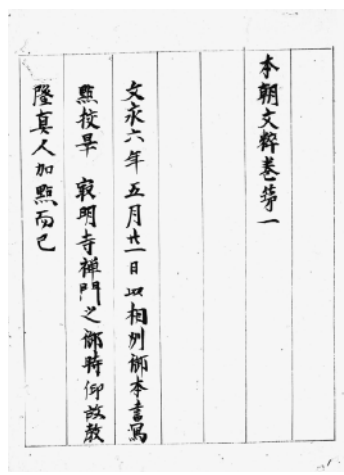 本朝文粹巻第一
文永六年五月廿一日以相州御本書寫
點挍畢 寂明寺禅門之御時仰故教
隆真人加點而已